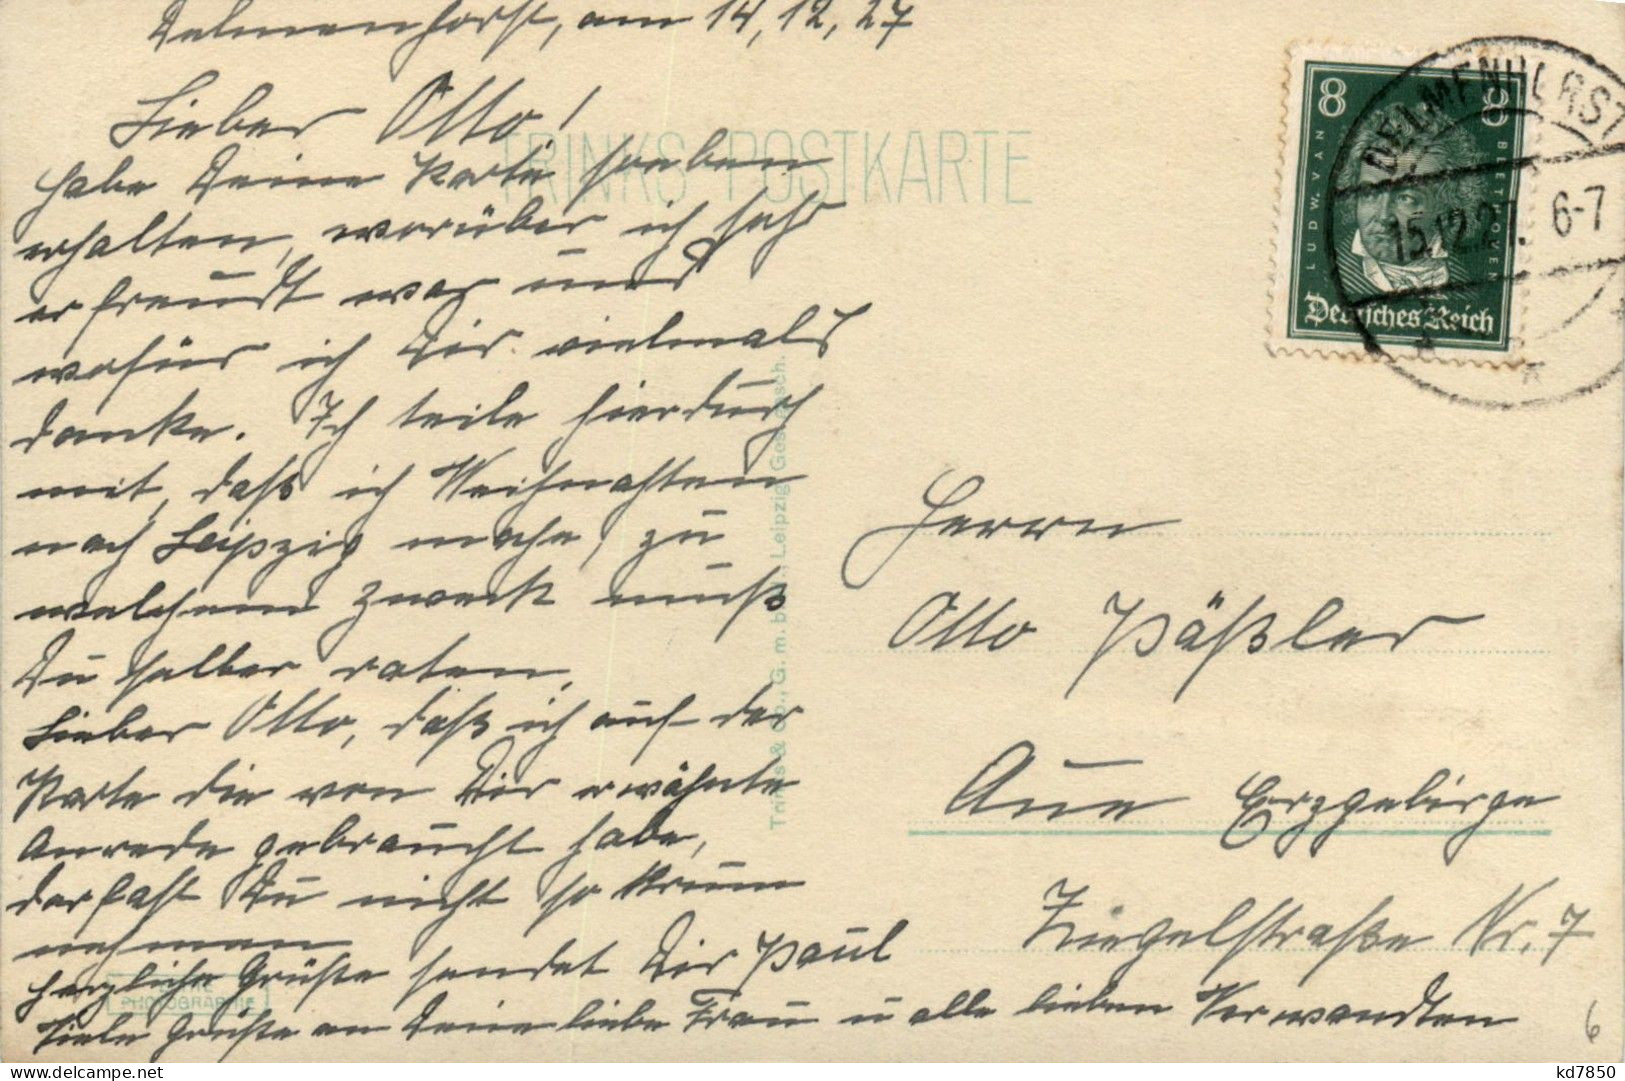 Delmenhorst, am 14,12,27
Lieber Otto!
habe Deine Karte soeben
erhalten, worüber ich sehr
erfreudt war und
wofür ich Dir vielmals
danke. Ich teile hierdurch
mit, daß ich Weihnachten
nach Leipzig mache, zu
welchem Zweck muß
Du selber raten,
Lieber Otto, daß ich auf der
Karte die von Dir erwähnte
Anrede gebraucht habe,
darfast Du nicht so krum
nehmen
herzliche Grüße sendet Dir Paul
Viele Grüße an Deine liebe Frau u alle lieben Verwandten
TRINKS-POSTKARTE
Trinks & Co., G. m. b. H., Leipzig Ges. gesch.
PHOTOGRAPHIE
8 8
LUDW. VAN BEETHOVEN
Deutsches Reich
DELMENHORST
15.12.27. 6-7
Herrn
Otto Päßler
Aue Erzgebirge
Ziegelstraße Nr. 7
6
www.delcampe.net
kd7850